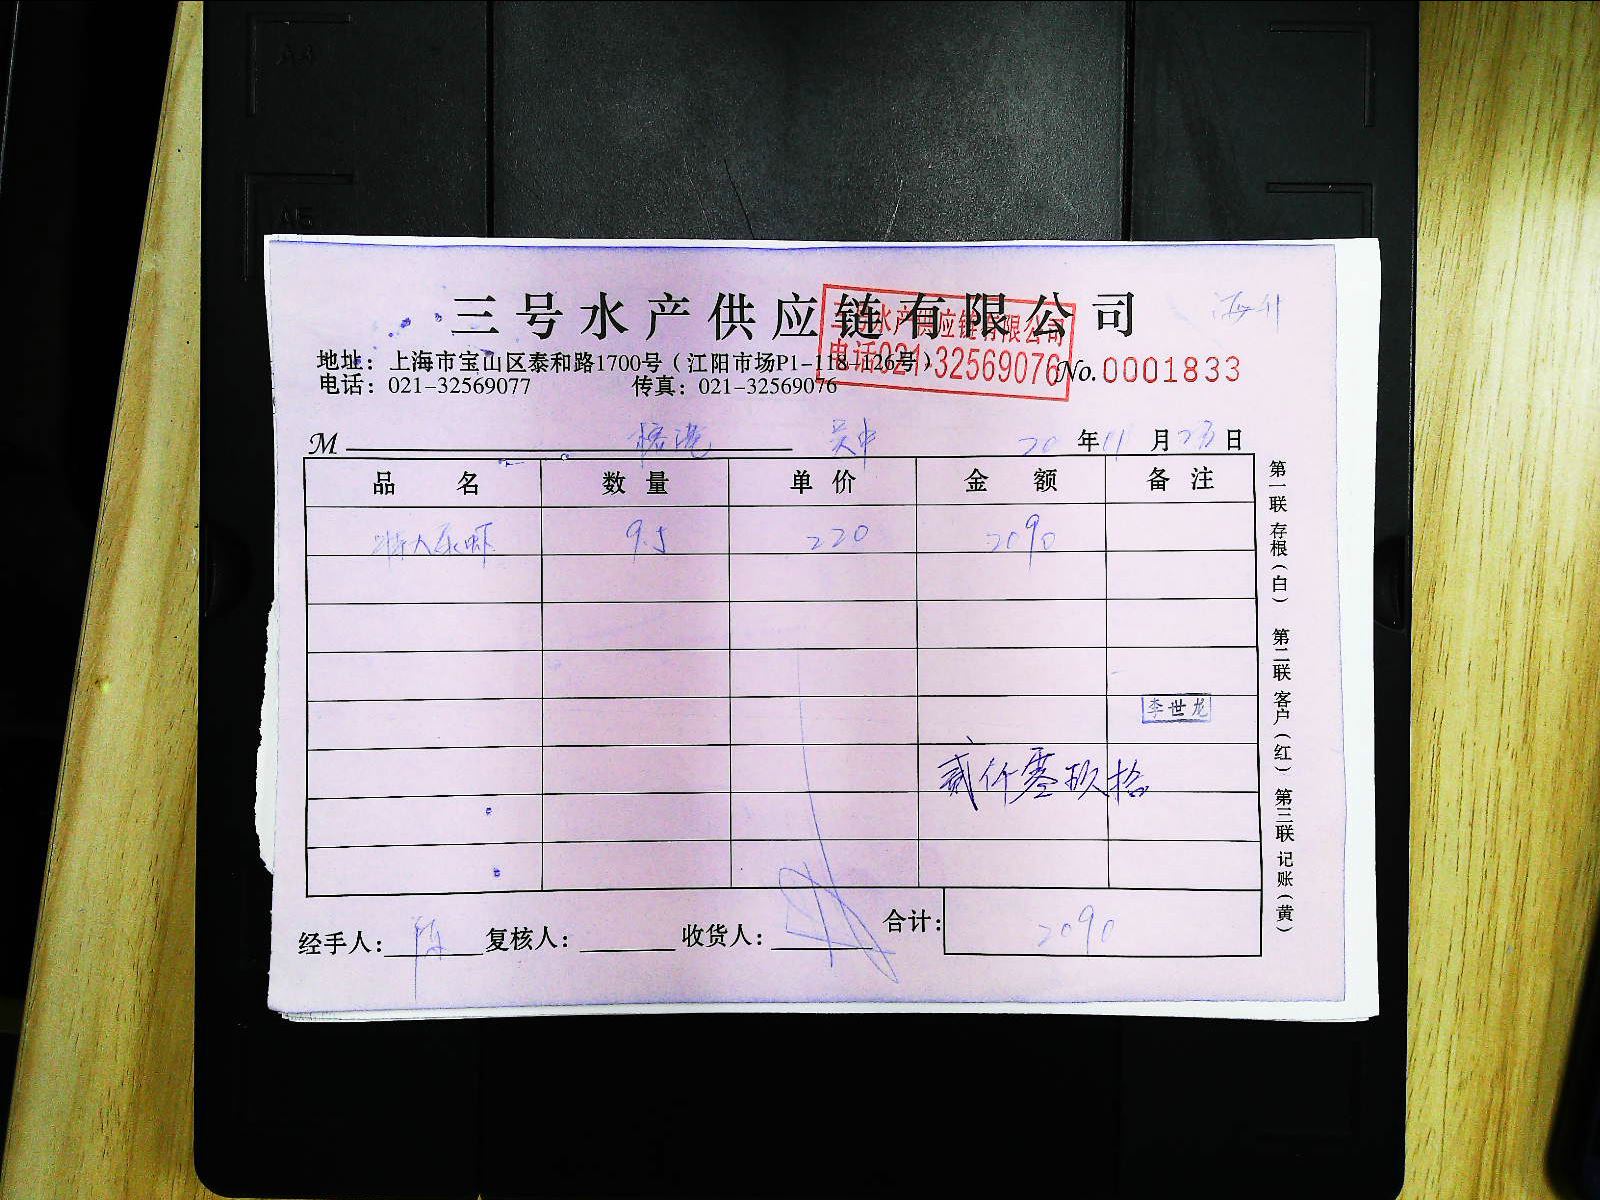 三号水产供应链有限公司
三号水产供应链有限公司
电话021-32569076
地址：上海市宝山区泰和路1700号（江阳市场P1-118-126号）
电话：021-32569077 传真：021-32569076
No.0001833
M 吴中 20 年 11 月 23 日
品名 数量 单价 金额 备注
特大 虾 9.5 220 2090
李世龙
贰仟零玖拾
经手人：陈 复核人： 收货人： 合计：2090
第一联 存根（白） 第二联 客户（红） 第三联 记账（黄）